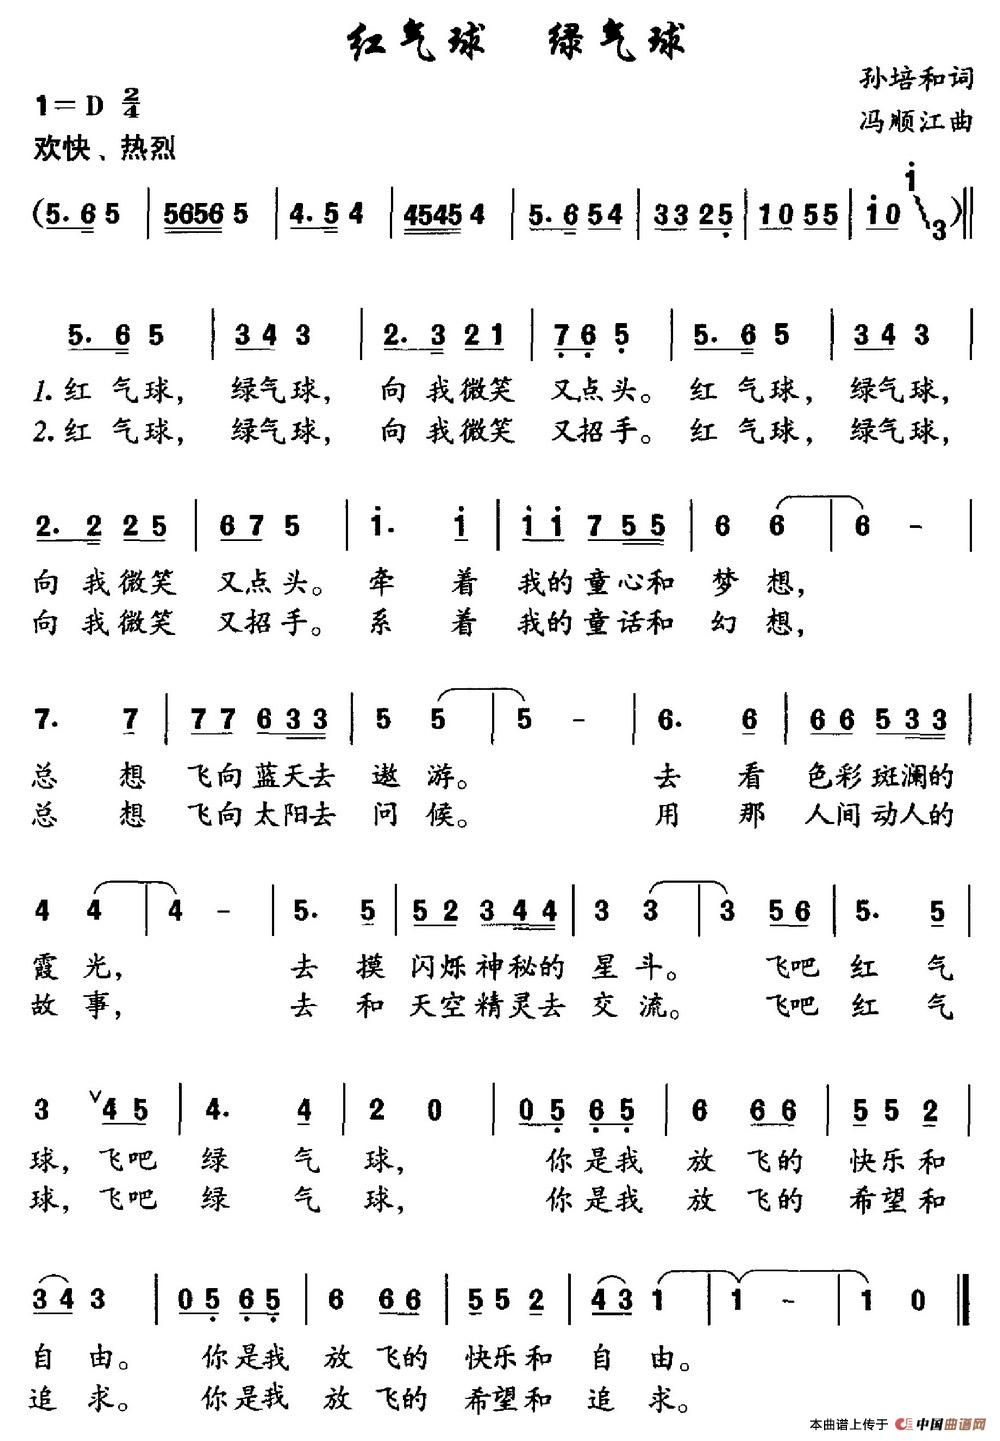 红气球 绿气球
孙培和词
1=D 2/4
冯顺江曲
欢快、热烈
(5. 6 5 | 5656 5 | 4. 5 4 | 4545 4 | 5. 6 54 | 33 25 | 10 55 | i0 i 3)‖
5. 6 5 | 34 3 | 2. 3 21 | 76 5 | 5. 6 5 | 34 3 |
1.红 气球, 绿气球, 向 我微笑 又点头。 红 气球, 绿气球,
2.红 气球, 绿气球, 向 我微笑 又招手。 红 气球, 绿气球,
2. 2 25 | 67 5 | i. i | ii 755 | 6 6 | 6 - |
向 我微笑 又点头。 牵 着 我的童心和 梦 想,
向 我微笑 又招手。 系 着 我的童话和 幻 想,
7. 7 | 77 633 | 5 5 | 5 - | 6. 6 | 66 533 |
总 想 飞向蓝天去 遨 游。 去 看 色彩斑澜的
总 想 飞向太阳去 问 候。 用 那 人间动人的
4 4 | 4 - | 5. 5 | 52 344 | 3 3 | 3 56 | 5. 5 |
霞 光, 去 摸 闪烁神秘的 星 斗。 飞吧 红 气
故 事, 去 和 天空精灵去 交 流。 飞吧 红 气
3 ∨45 | 4. 4 | 2 0 | 05 65 | 6 66 | 55 2 |
球, 飞吧 绿 气 球, 你是我 放 飞的 快乐和
球, 飞吧 绿 气 球, 你是我 放 飞的 希望和
34 3 | 05 65 | 6 66 | 55 2 | 43 1 | 1 - | 1 0 ‖
自 由。 你是我 放 飞的 快乐和 自 由。
追 求。 你是我 放 飞的 希望和 追 求。
本曲谱上传于 中国曲谱网